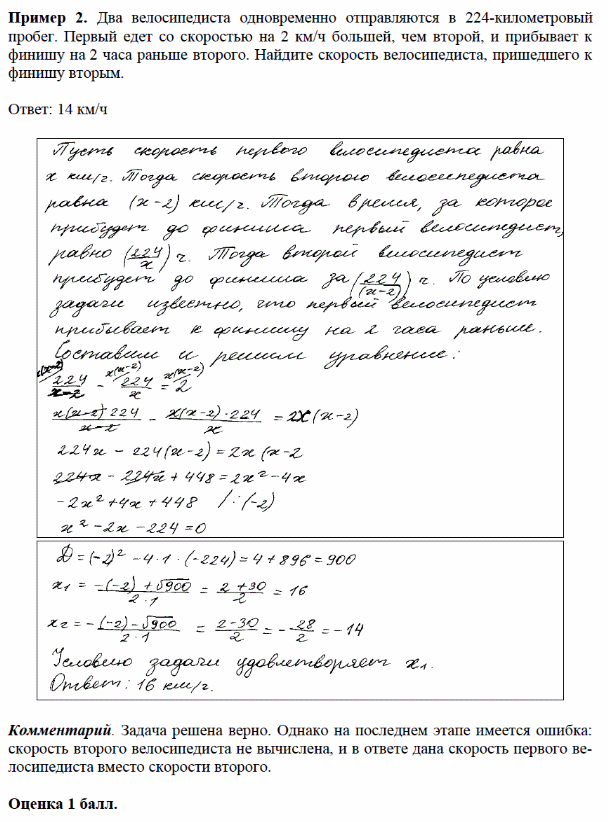 Пример 2. Два велосипедиста одновременно отправляются в 224-километровый
пробег. Первый едет со скоростью на 2 км/ч большей, чем второй, и прибывает к
финишу на 2 часа раньше второго. Найдите скорость велосипедиста, пришедшего к
финишу вторым.
Ответ: 14 км/ч
Пусть скорость первого велосипедиста равна
x км/ч. Тогда скорость второго велосипедиста
равна (x-2) км/ч. Тогда время, за которое
прибудет до финиша первый велосипедист,
равно (224/x) ч. Тогда второй велосипедист
прибудет до финиша за (224/(x-2)) ч. По условию
задачи известно, что первый велосипедист
прибывает к финишу на 2 часа раньше.
Составим и решим уравнение:
x(x-2) x(x-2) x(x-2)
224/x-2 - 224/x = 2
x(x-2) 224/x-2 - x(x-2)·224/x = 2x(x-2)
224x - 224(x-2) = 2x(x-2
224x - 224x + 448 = 2x² - 4x
-2x² + 4x + 448 /:(-2)
x² - 2x - 224 = 0
D = (-2)² - 4·1·(-224) = 4 + 896 = 900
x₁ = -(-2)+√900/2·1 = 2+30/2 = 16
x₂ = -(-2)-√900/2·1 = 2-30/2 = -28/2 = -14
Условию задачи удовлетворяет x₁.
Ответ: 16 км/ч.
Комментарий. Задача решена верно. Однако на последнем этапе имеется ошибка:
скорость второго велосипедиста не вычислена, и в ответе дана скорость первого ве-
лосипедиста вместо скорости второго.
Оценка 1 балл.